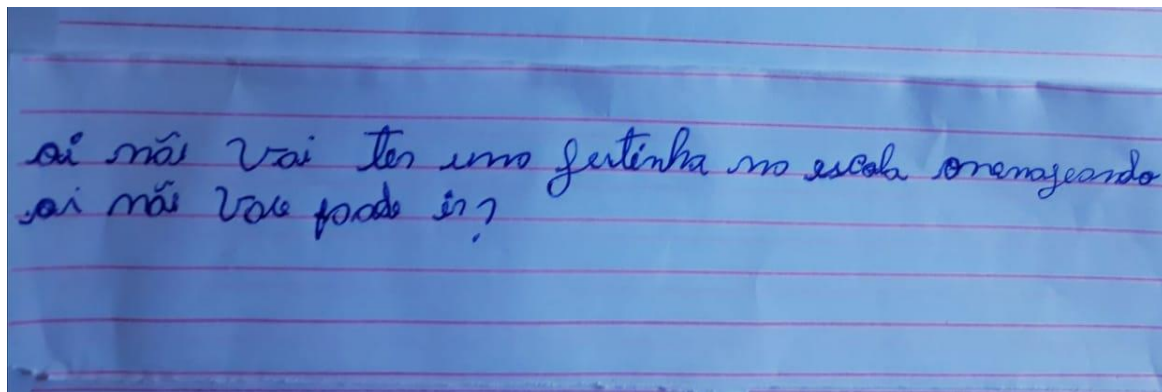 oi mãi vai ter uma festinha na escola omenageando
oi mãi voce pode ir?